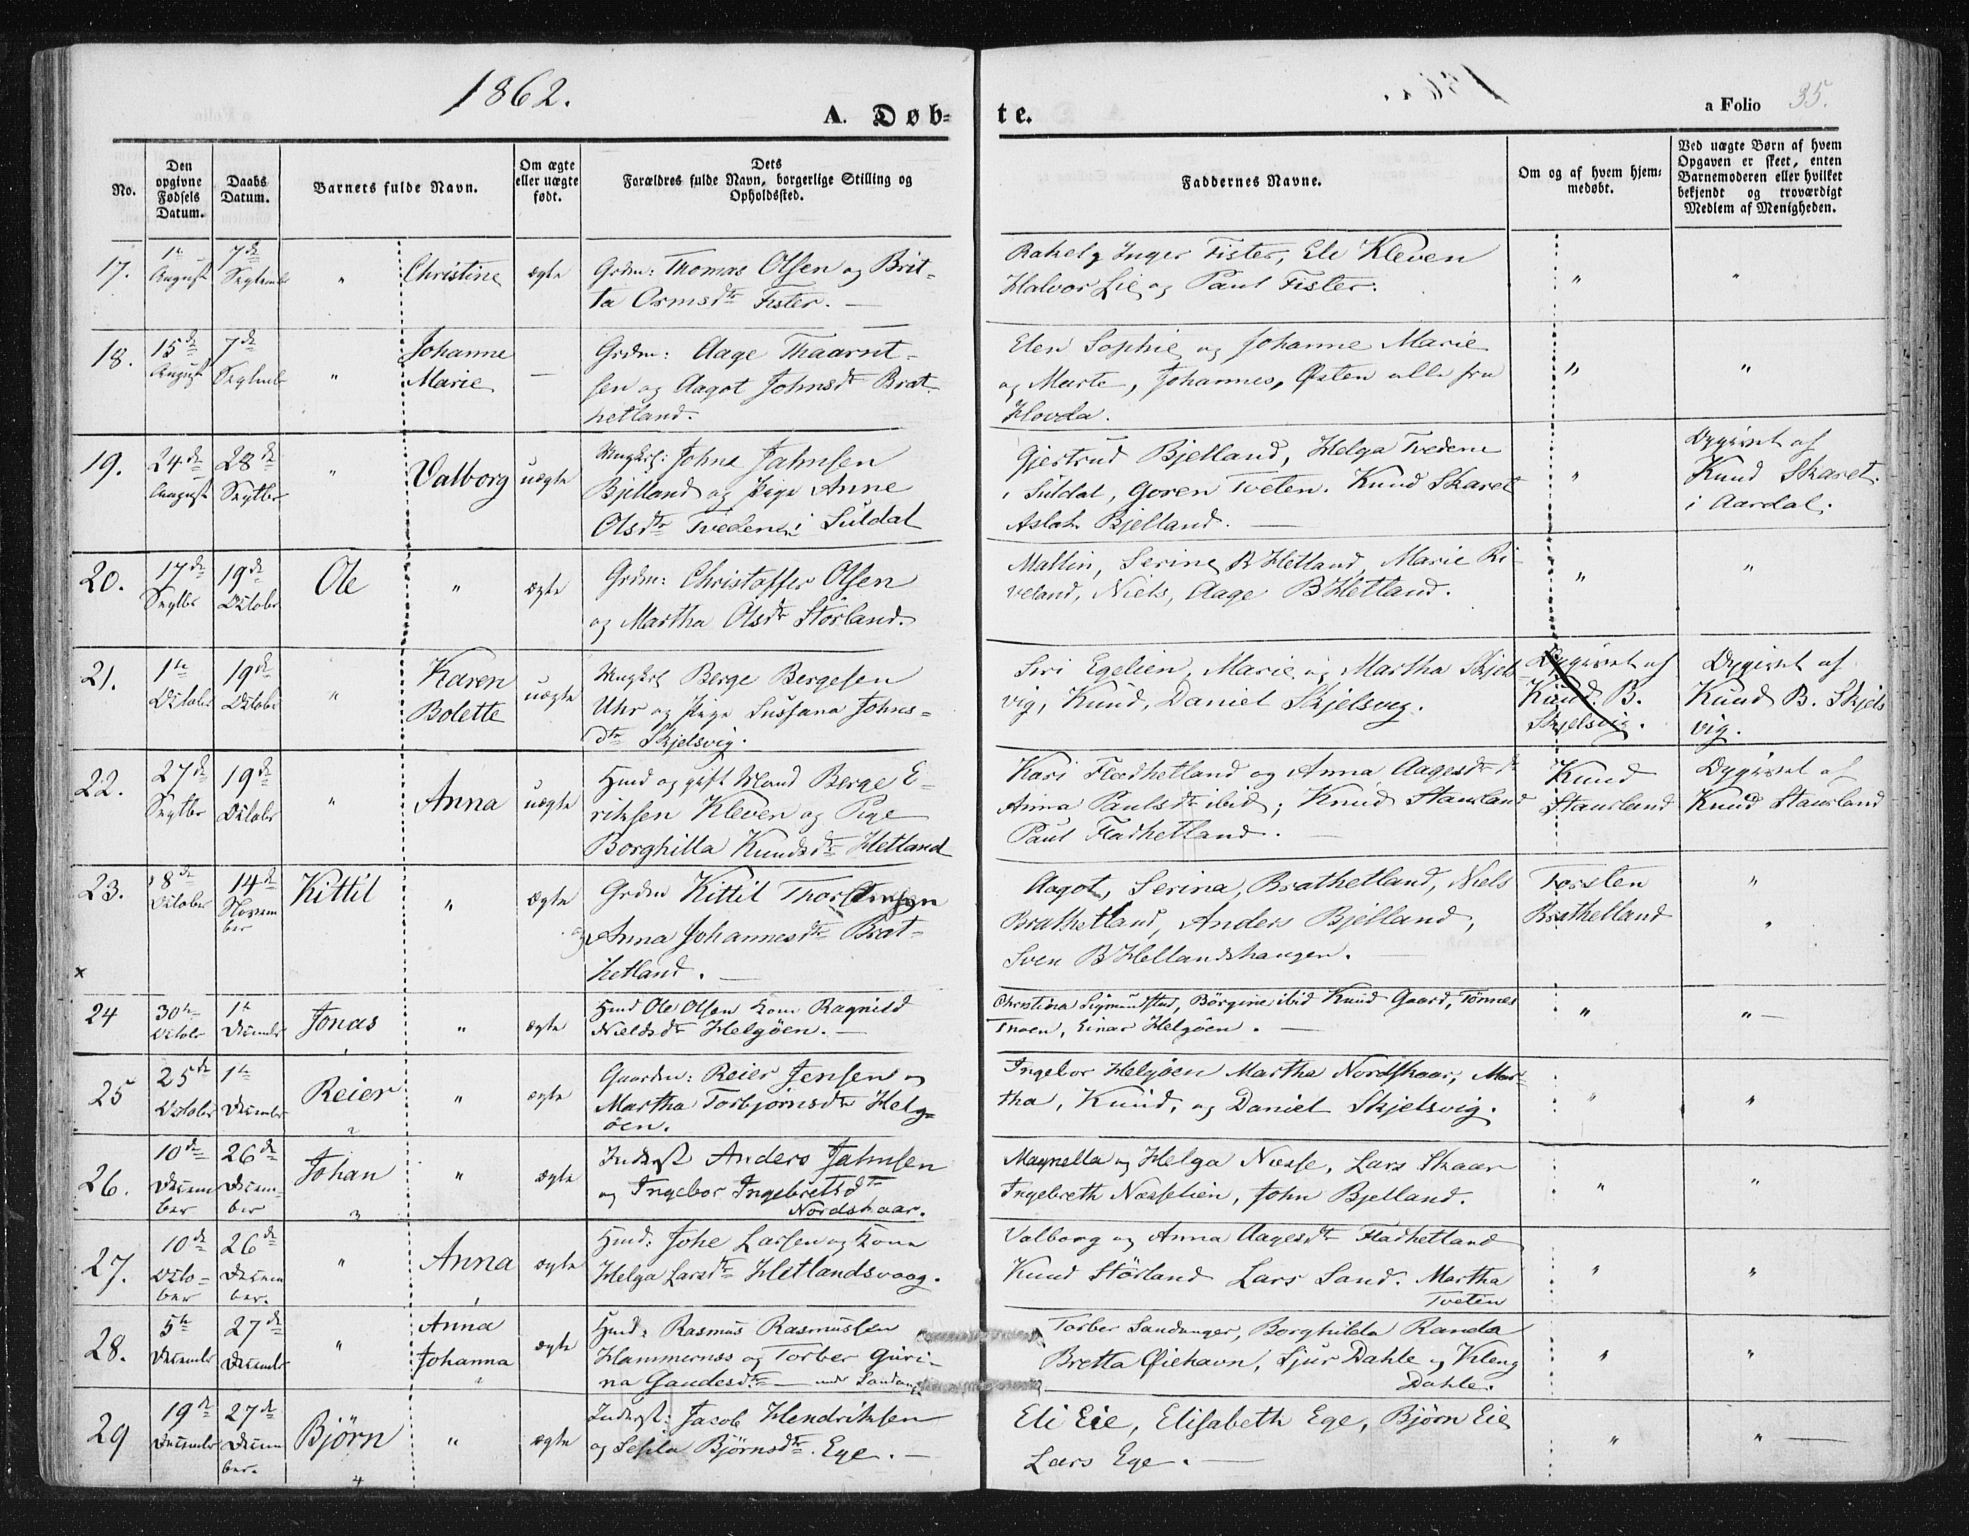 1862.
A. Døb-
te.
a Folio 35.
No.
Den opgivne Fødsels Datum.
Daabs Datum.
Barnets fulde Navn.
Om ægte eller uægte født.
Dets Forældres fulde Navn, borgerlige Stilling og Opholdssted.
Faddernes Navne.
Om og af hvem hjem-
medøbt.
Ved uægte Børn af hvem
Opgaven er skeet, enten
Barnemoderen eller hvilket
bekjendt og troværdigt
Medlem af Menigheden.
17.
1te August
7de Septembr
"
Christine
ægte
Grdm: Thomas Olsen og Brit-
ta Ormsdtr Fister. —
Rakel, Inger Fister, Ele Kleven
Halvor Lie og Paul Fister.
"
"
18.
15de August
7de Septembr
"
Johanne
Marie
—
Grdm: Aage Thaarnt-
sen og Aagot Johnsdtr Brat-
hetland.
Elen Sophie og Johanne Marie
og Marte, Johannes, Østen alle fra
Hovda.
"
"
19.
24de August
28de Septbr
"
Valborg
uægte
Ungkrl: Johne Jahnsen
Bjelland og Pige Anne
Olsdtr Tvedene i Suldal
Gjertrud Bjelland, Helga Tvedene
i Suldal, Goren Tveten. Knud Skaret
Aslak Bjelland. —
"
Opgivet af
Knud Skaret.
i Aardal.
20.
17de Septbr
19de Octobr
Ole
"
ægte
Grdm: Christoffer Olsen
og Martha Olsdtr Storland.
Mallin, Serine B Hetland, Marie Ri-
veland, Niels, Aage B Hetland.
"
"
21.
1te Octobr
19de Octobr
"
Karen
Bolette
uægte
Ungkrl Berge Bergesen
Uhr og Pige Sussana Johns-
dtr Skjelsvig.
Siri Egelien, Marie og Martha Skjels-
vig, Knud, Daniel Skjelsvig.
Opgivet af
Knud. B.
Skjelsvig.
Opgivet af
Knud B. Skjels
vig.
22.
27de Septbr
19de Octobr
"
Anna
uægte
Hmd og gift Mand Berge E-
riksen Kleven og Pige
Borghilla Knudsdtr Hetland
Kari Fladhetland og Anna Aagesdtr
Anna Paulsdtr ibid; Knud Staurland
Paul Fladhetland. —
Knud
Staurland
Opgivet af
Knud Staurland
23.
18de Octobr
14de Novem
ber
Kittil
"
ægte
Grdm Kittil Thorstensen
og Anna Johannesdtr Brat-
hetland. —
Aagot, Serina, Brathetland, Niels
Brathetland, Anders Bjelland,
Sven B Hetlandshaugen. —
Torsten
Brathetland
"
"
x
24
30te Octobr
1te Decembr
Jonas
"
ægte
Hmd Ole Olsen Kone Ragnild
Nieldsdtr Helgøen. —
Christina Sigmundstad, Børgine ibid Knud Gaard, Tønnes
Einar Helgøen. —
"
" —
25
25de Octobr
1te Decembr
Reier
2
"
ægte
Gaardm: Reier Jensen og
Martha Torbjørnsdtr Helg-
øen.
Ingebor Helgøen Martha Nordskaar, Mar-
tha, Knud, og Daniel Skjelsvig.
"
"
26.
10de Decem
ber
26de Decem-
ber
Johan
3
"
ægte
Inderst Anders Jahnsen
og Ingebor Ingebretsdtr
Nordskaar.
Magnella og Helga Næsse, Lars Skaar
Ingebreth Næsselien, John Bjelland.
"
"
27.
10de Octo-
ber
26de Decem
ber.
"
Anna
1
ægte
Hmd: Johe Larsen og Kone
Helga Larsdtr Hetlandsvaag.
Valborg og Anna Aagesdtr Fladhetland
Knud Storland Lars Sand. Martha
Tveten
"
"
28.
5te Decembr
27de Decembr
"
Anna
Johanna
2
ægte
Hmd: Rasmus Rasmussen
Hammernæs og Torber Guri-
na Gaudesdtr —
Torber Sandanger, Borghilda Randa
Bretta Øiehavn, Sjur Dahle og Kleng
Dahle.
"
"
29
19de Decembr
27de Decem
ber.
Bjørn
4
"
ægte
Inderst: Jacob Hendriksen
og Sesila Bjørnsdtr. Ege. —
Eli Eie, Elisabeth Ege, Bjørn Eie
Lars Ege. —
"
" —